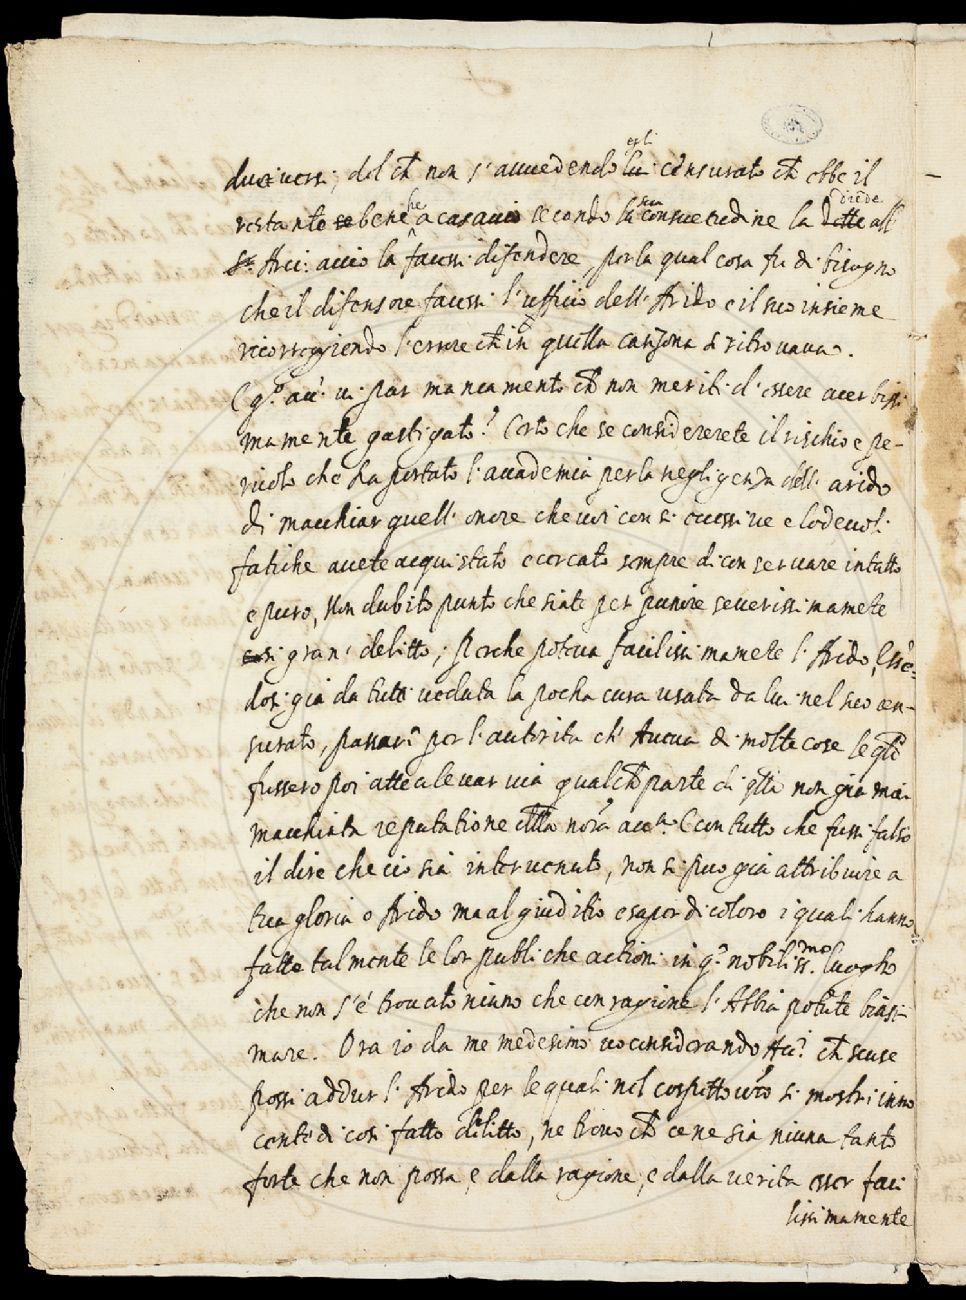 due versi; del ch̃ non s'auuedendo egli lui censurato ch̃ ebbe il
restante se bene he a casaccio secondo la sua consuetudine la dette diede all
S.r Acc: accio la facessi difendere, per la qual cosa fu di bisogno
che il difensore facessi l'uffitio dell'Arido e il suo insieme
ricorreggiendo l'errore ch̃ in quella canzona si ritrouaua.
E q.o acc.i ui par mancamento ch̃ non meriti d'essere acerbissi
mamente gastigato? Certo che se considererete il rischio e pe-
ricolo che ha portato l'accademia per la negligenza dell'arido
di macchiar quell'onore che uoi con si eccessiue e lodeuoli
fatiche auete acquistato e cercato sempre di conseruare intatto
e puro, Non dubito punto che siate per punire seuerissimamẽte
cosi gran' delitto; perche poteua facilissimamẽte l'Arido, essẽ-
dosi gia da tutti ueduta la pocha cura usata da lui nel suo cen-
surato, passar p̃ per l'autorita ch' Aueua di molte cose le q̃li
fussero poi atte a leuar uia qualch̃ parte di q̃lla non gia mai
macchiata reputatione della nr̃a acc.a E con tutto che fussi falso
il dire che cio sia interuenuto, non si puo gia attribuire a
tua gloria o Arido ma al giuditio e saper di coloro i quali hanno
fatto talmente le lor publiche actioni in q.o nobiliss.mo luogho
che non s'è trouato niuno che con ragione l'Abbia potute biasi-
mare. Ora io da me medesimo uo considerando Acc.i ch̃ scuse
possi addur l'Arido per le quali nel cospetto ur̃o si mostri inno
cente di cosi fatto delitto, ne trouo ch̃ ce ne sia niuna tanto
forte che non possa, e dalla ragione, e dalla uerita esser faci
lissimamente